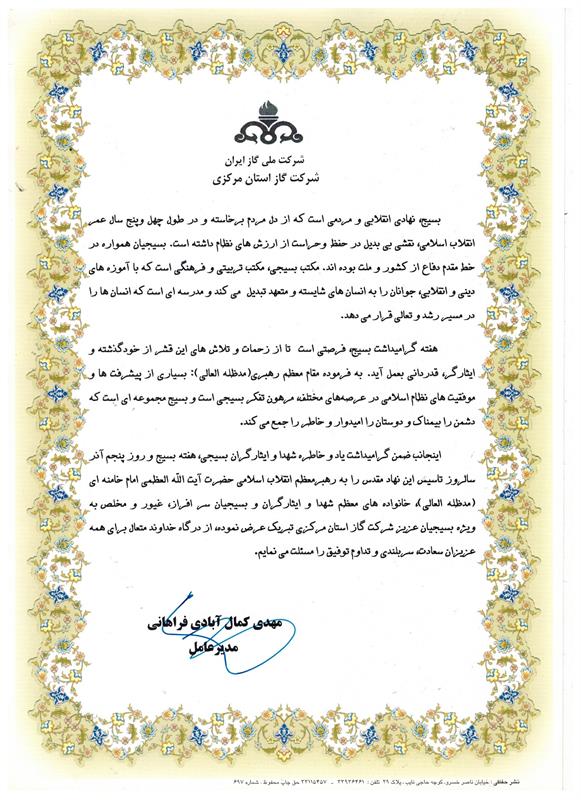 شرکت ملی گاز ایران
شرکت گاز استان مرکزی
بسیج، نهادی انقلابی و مردمی است که از دل مردم برخاسته و در طول چهل وپنج سال عمر
انقلاب اسلامی، نقشی بی بدیل در حفظ وحراست از ارزش های نظام داشته است. بسیجیان همواره در
خط مقدم دفاع از کشور و ملت بوده اند. مکتب بسیجی، مکتب تربیتی و فرهنگی است که با آموزه های
دینی و انقلابی، جوانان را به انسان های شایسته و متعهد تبدیل می کند و مدرسه ای است که انسان ها را
در مسیر رشد و تعالی قرار می دهد.
هفته گرامیداشت بسیج، فرصتی است تا از زحمات و تلاش های این قشر از خودگذشته و
ایثارگر، قدردانی بعمل آید. به فرموده مقام معظم رهبری(مدظله العالی): بسیاری از پیشرفت ها و
موفقیت های نظام اسلامی در عرصه‌های مختلف، مرهون تفکر بسیجی است و بسیج مجموعه ای است که
دشمن را بیمناک و دوستان را امیدوار و خاطر را جمع می کند.
اینجانب ضمن گرامیداشت یاد و خاطره شهدا و ایثارگران بسیجی، هفته بسیج و روز پنجم آذر
سالروز تاسیس این نهاد مقدس را به رهبرمعظم انقلاب اسلامی حضرت آیت الله العظمی امام خامنه ای
(مدظله العالی)، خانواده های معظم شهدا و ایثارگران و بسیجیان سر افراز، غیور و مخلص به
ویژه بسیجیان عزیز شرکت گاز استان مرکزی تبریک عرض نموده، از درگاه خداوند متعال برای همه
عزیزان سعادت، سربلندی و تداوم توفیق را مسئلت می نمایم.
مهدی کمال آبادی فراهانی
مدیرعامل
نشر حقیقی : خیابان ناصر خسرو، کوچه حاجی نایب، پلاک ۲۹ تلفن : ۳۳۹۳۶۴۶۱ - ۳۳۱۱۵۴۵۷ حق چاپ محفوظ . شماره ۶۹۷